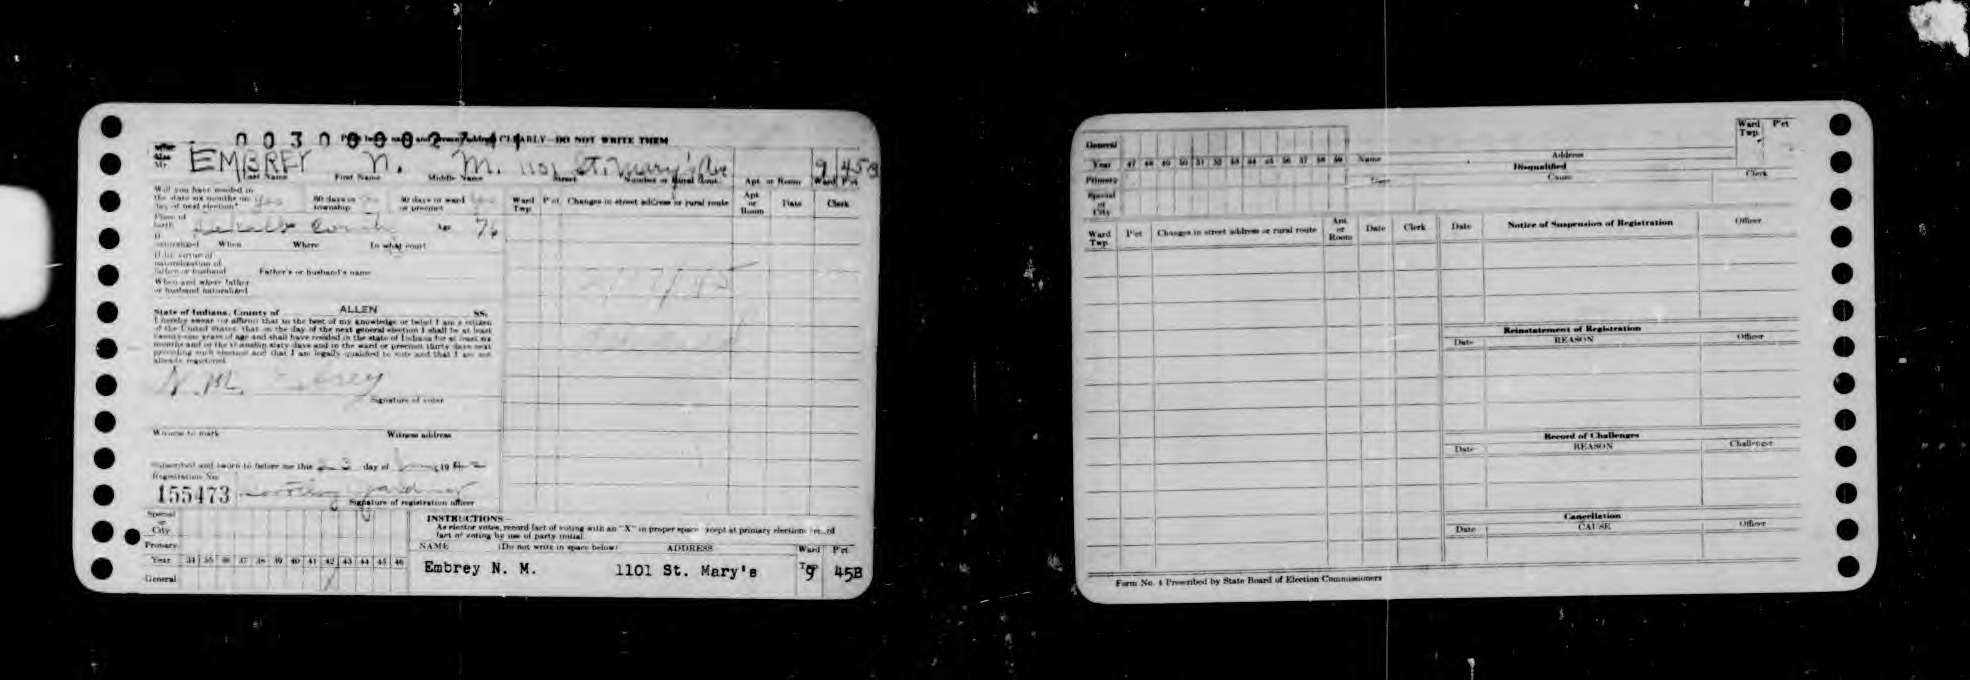 003000027 41 CLEARLY—DO NOT WRITE THEM
Mr. EMBREY N. M. 1101 St. Mary's Ave 9 45B
Last Name First Name Middle Name Street Number or Rural Route Apt. or Room Ward Pct.
Will you have resided in
the state six months on yes 60 days in yes 30 days in ward yes
day of next election? township or precinct
Ward Twp. Pct. Changes in street address or rural route Apt. or Room Date Clerk
Place of
birth Dekalb County Age 76
If
naturalized When Where In what court
If by virtue of
naturalization of
father or husband Father's or husband's name
When and where father
or husband naturalized
2/17/45
State of Indiana, County of ALLEN SS.
I hereby swear (or affirm) that to the best of my knowledge or belief I am a citizen
of the United States, that on the day of the next general election I shall be at least
twenty-one years of age and shall have resided in the state of Indiana for at least six
months and in the township sixty days and in the ward or precinct thirty days next
preceding such election and that I am legally qualified to vote and that I am not
already registered.
N. M. Embrey
Signature of voter
Witness to mark Witness address
Subscribed and sworn to before me this 23 day of 1942
Registration No.
155473 Dorothy Gardner
Signature of registration officer
Special
or
City
Primary
Year 34 35 36 37 38 39 40 41 42 43 44 45 46
General X
INSTRUCTIONS—
As elector votes, record fact of voting with an "X" in proper space except at primary elections record
fact of voting by use of party initial.
NAME (Do not write in space below) ADDRESS Ward Pct.
Embrey N. M. 1101 St. Mary's Twp 9 45B
General
Year 47 48 49 50 51 52 53 54 55 56 57 58 59
Primary
Special
or
City
Name Address Ward Twp. Pct.
Disqualified
Date Cause Clerk
Ward Twp. Pct. Changes in street address or rural route Apt. or Room Date Clerk
Date Notice of Suspension of Registration Officer
Reinstatement of Registration
Date REASON Officer
Record of Challenges
Date REASON Challenger
Cancellation
Date CAUSE Officer
Form No. 4 Prescribed by State Board of Election Commissioners